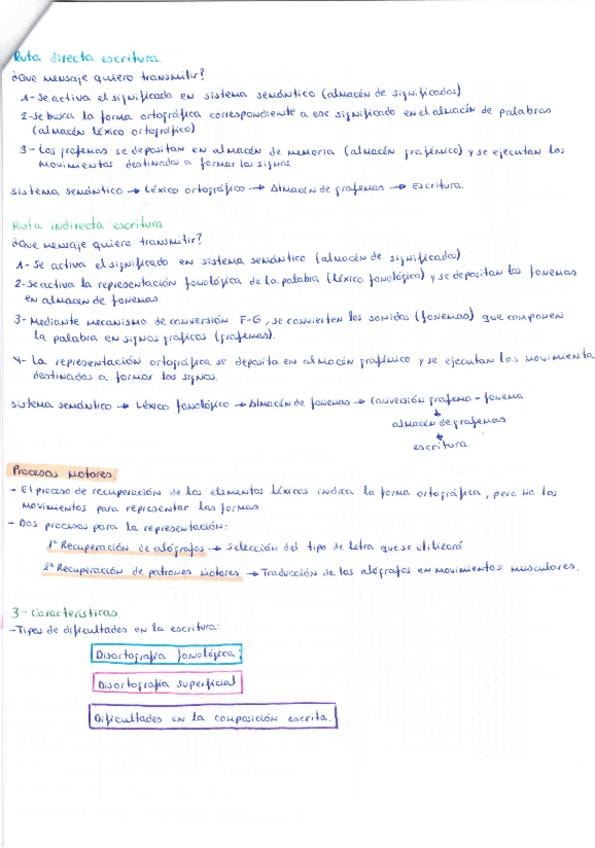 Ruta directa escritura.
¿Que mensaje quiero transmitir?
1- Se activa el significado en sistema semántico (almacén de significados)
2- Se busca la forma ortográfica correspondiente a ese significado en el almacén de palabras
(almacén léxico ortográfico)
3- Los grafemas se depositan en almacén de memoria (almacén grafémico) y se ejecutan los
movimientos destinados a formar los signos.
sistema semántico → Léxico ortográfico → Almacén de grafemas → Escritura.
Ruta indirecta escritura
¿Que mensaje quiero transmitir?
1- Se activa el significado en sistema semántico (almacén de significado)
2- Se activa la representación fonológica de la palabra (léxico fonológico) y se depositan los fonemas
en almacén de fonemas.
3- Mediante mecanismo de conversión F-G, se convierten los sonidos (fonemas) que componen
la palabra en signos graficos (grafemas).
4- La representación ortográfica se deposita en almacén grafémico y se ejecutan los movimienta
destinados a formar los signos.
sistema semántico → Léxico fonológico → Almacén de fonemas → Conversión grafema - fonema
↓
almacén de grafemas
↓
escritura
Procesos Motores.
- El proceso de recuperación de los elementos léxicos indica la forma ortográfica, pero no los
movimientos para representar las formas
- Dos procesos para la representación:
1º Recuperación de alógrafos → Selección del tipo de letra que se utilizará
2º Recuperación de patrones motores → Traducción de los alógrafos en movimientos musculares.
3- Características
- Tipos de dificultades en la escritura:
Disortografía fonológica:
Disortografía superficial
Dificultades en la composición escrita.